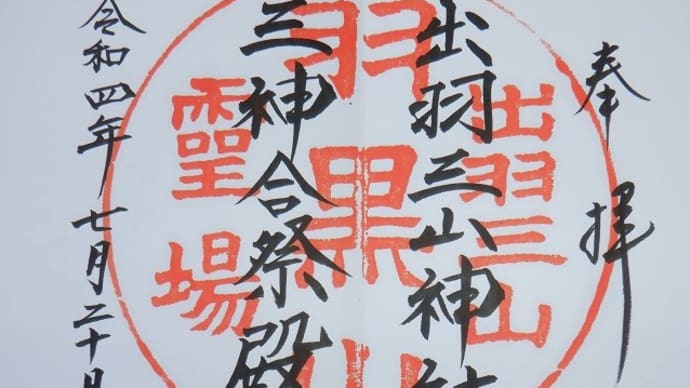 奉拜
出羽三山神社
三神合祭殿
令和四年七月二十日
出羽三山
羽黒山
霊場